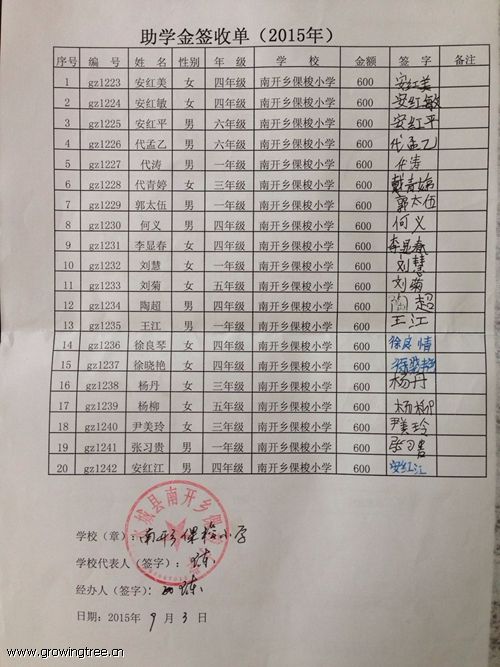 助学金签收单（2015年）
序号 编 号 姓 名 性别 年 级 学 校 金额 签 字 备注
1 gz1223 安红美 女 四年级 南开乡倮梭小学 600 安红美
2 gz1224 安红敏 女 四年级 南开乡倮梭小学 600 安红敏
3 gz1225 安红平 男 六年级 南开乡倮梭小学 600 安红平
4 gz1226 代孟乙 男 六年级 南开乡倮梭小学 600 代孟乙
5 gz1227 代涛 男 一年级 南开乡倮梭小学 600 代涛
6 gz1228 代青婷 女 三年级 南开乡倮梭小学 600 戴青婷
7 gz1229 郭太伍 男 一年级 南开乡倮梭小学 600 郭太伍
8 gz1230 何义 男 四年级 南开乡倮梭小学 600 何义
9 gz1231 李显春 女 四年级 南开乡倮梭小学 600 李显春
10 gz1232 刘慧 女 一年级 南开乡倮梭小学 600 刘慧
11 gz1233 刘菊 女 五年级 南开乡倮梭小学 600 刘菊
12 gz1234 陶超 男 四年级 南开乡倮梭小学 600 陶超
13 gz1235 王江 男 一年级 南开乡倮梭小学 600 王江
14 gz1236 徐良琴 女 四年级 南开乡倮梭小学 600 徐良情
15 gz1237 徐晓艳 女 四年级 南开乡倮梭小学 600
16 gz1238 杨丹 女 三年级 南开乡倮梭小学 600 杨丹
17 gz1239 杨柳 女 五年级 南开乡倮梭小学 600 杨柳
18 gz1240 尹美玲 女 三年级 南开乡倮梭小学 600 尹美玲
19 gz1241 张习贵 男 一年级 南开乡倮梭小学 600 张习贵
20 gz1242 安红江 男 四年级 南开乡倮梭小学 600 安红江
城县南开乡倮
学校（章）：南开乡倮梭小学
学校代表人（签字）：
经办人（签字）：
日期：2015年 9 月 3 日
www.growingtree.cn